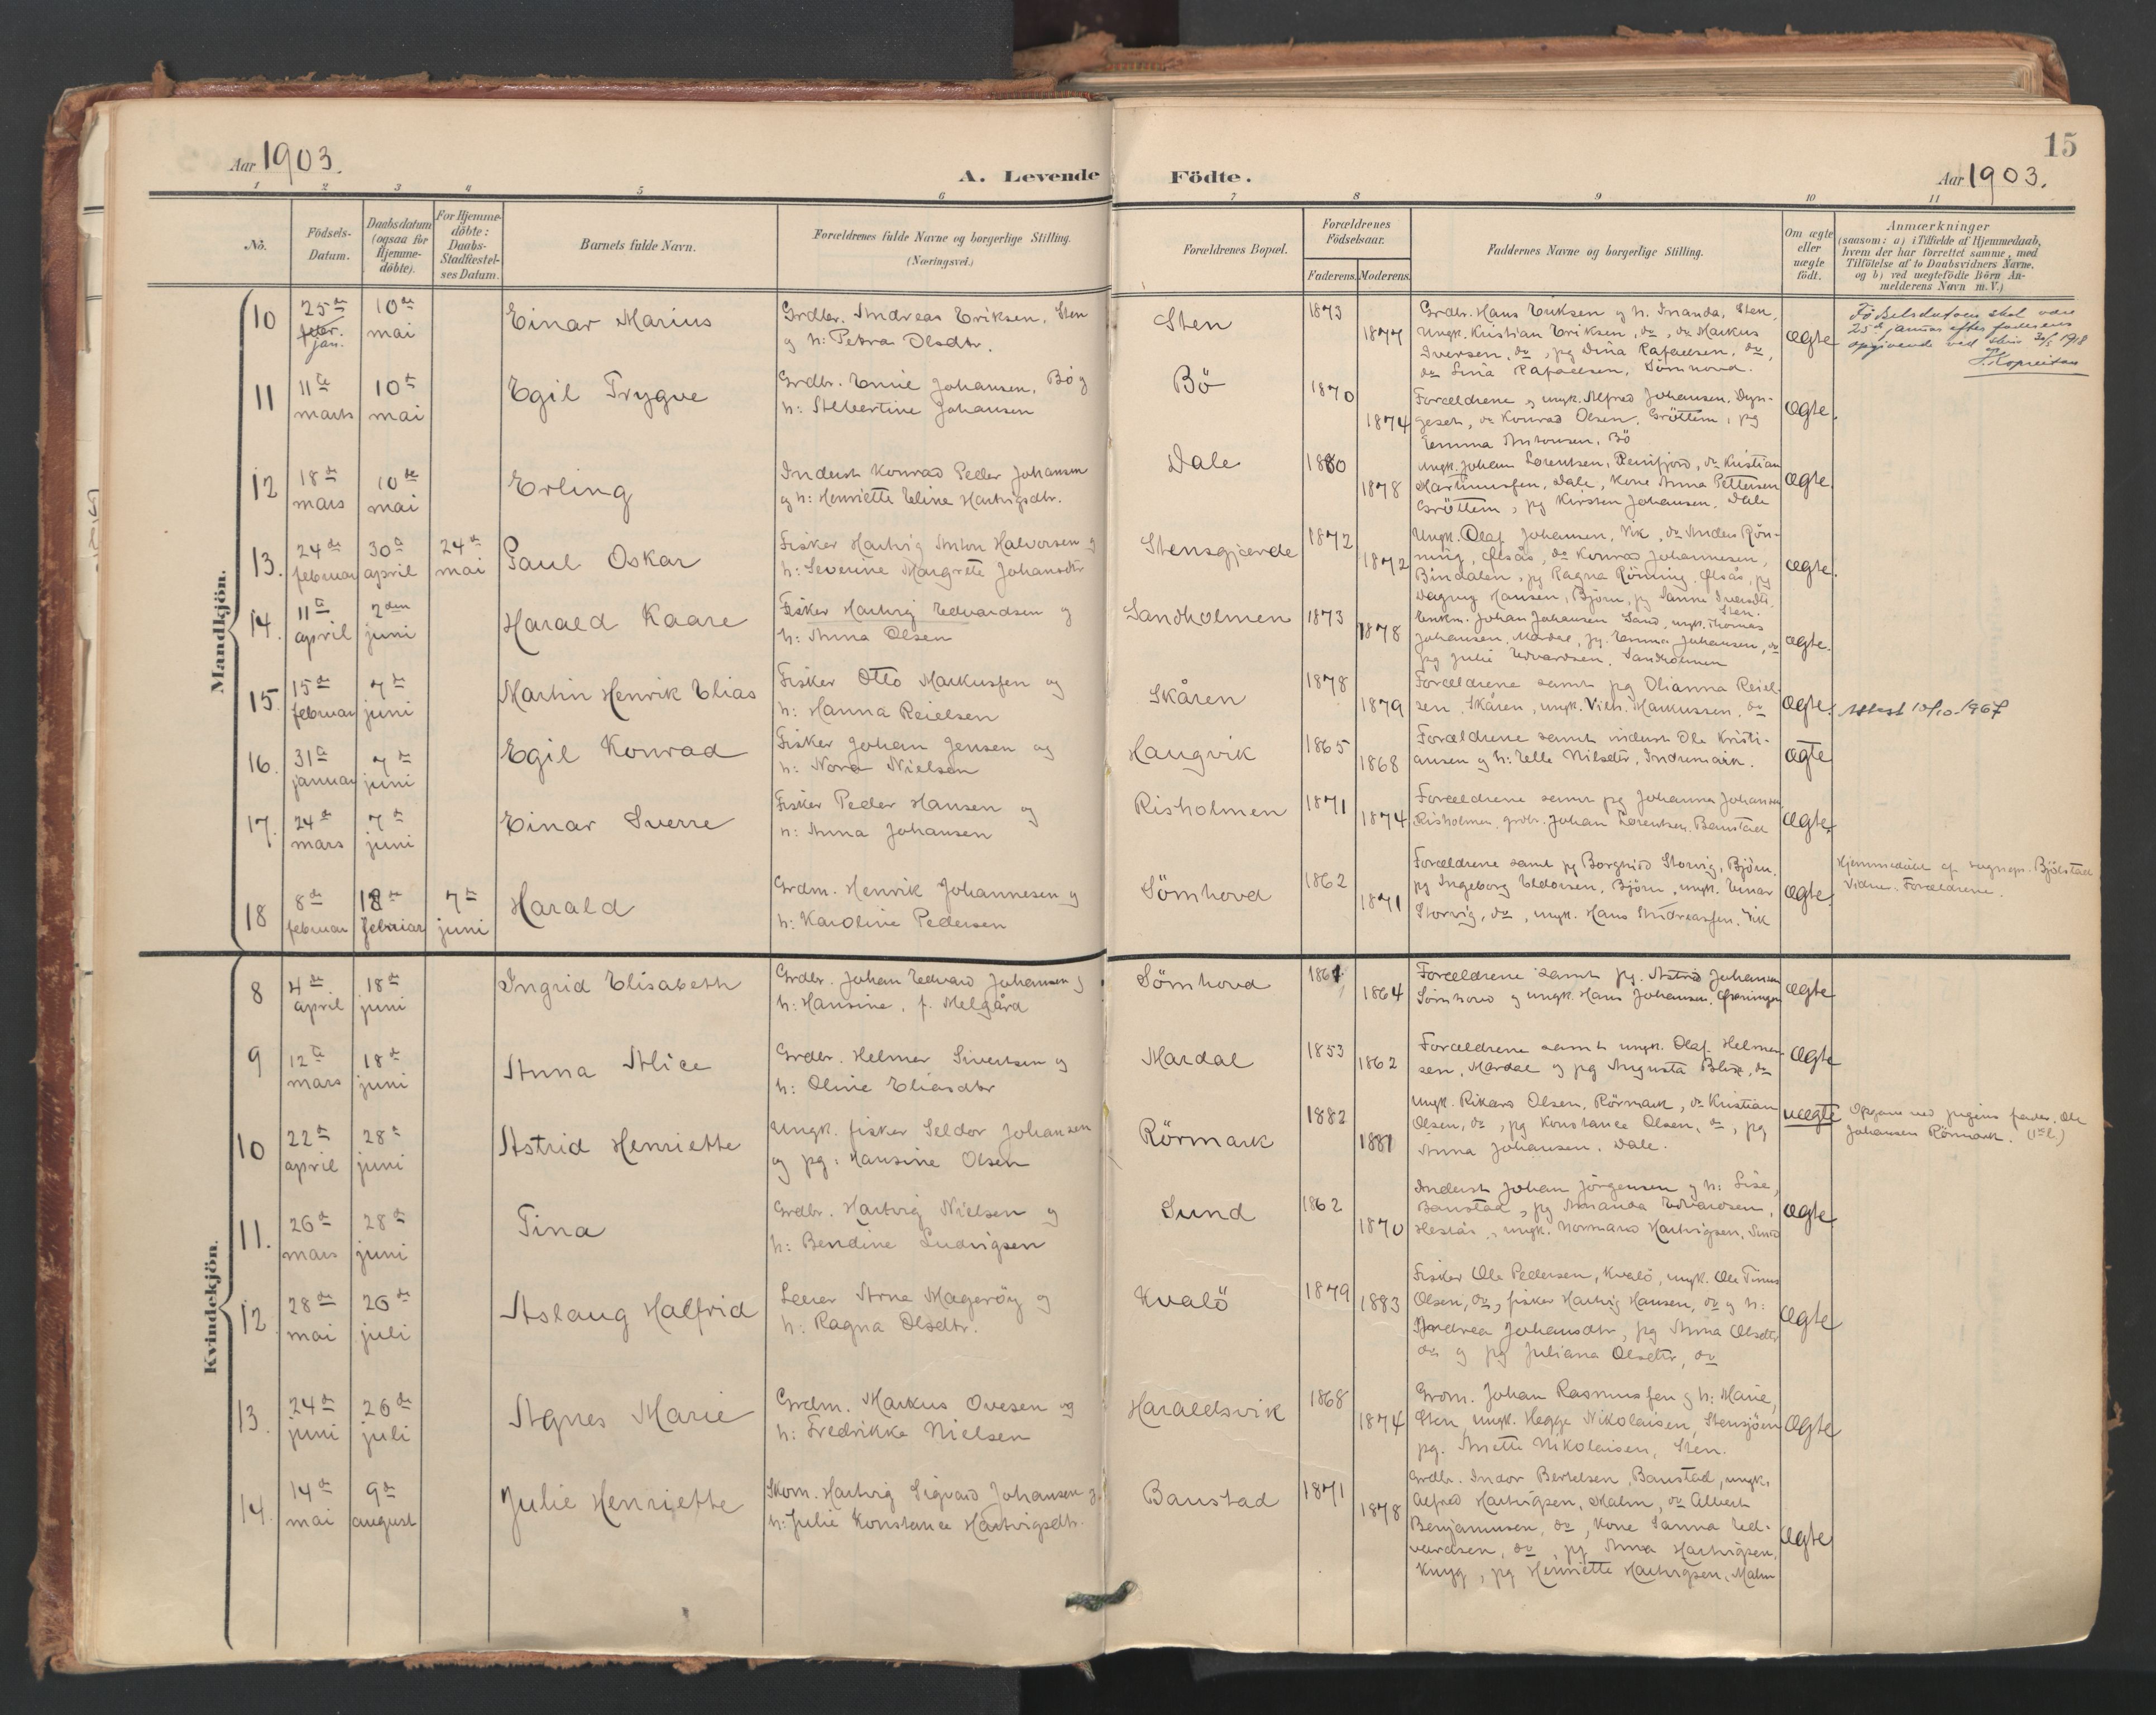 15
Aar 1903.
A. Levende Födte.
Aar 1903.
1 2 3 4 5 6 7 8 9 10 11
No.
Födsels-Datum.
Daabsdatum (ogsaa for Hjemme-döbte).
For Hjemme-döbte: Daabs-Stadfæstel-ses Datum.
Barnets fulde Navn.
Forældrenes fulde Navne og borgerlige Stilling.
(Næringsvei.)
Forældrenes Bopæl.
Forældrenes Födselsaar.
Faderens. Moderens.
Faddernes Navne og borgerlige Stilling.
Om ægte eller uægte födt.
Anmærkninger
(saasom: a) i Tilfælde af Hjemmedaab,
hvem der har forrettet samme, med
Tilföielse af to Daabsvidners Navne.
og b) ved uægtefödte Börn An-
melderens Navn m. V.)
Mandkjön.
10
25de febr. jan.
10de mai
Einar Marius
Grdbr. Andreas Eriksen, Sten
og h: Petra Olsdtr.
Sten
1873
1877
Grdbr. Hans Eriksen og h. Inanda, Sten,
Ungk. Kristian Eriksen, do, do Markus
Iversen, do, pg Dina Rafaelsen, do,
do Lina Rafaelsen, Sömhovd.
ægte
Födselsdatoen skal være
25de januar efter faderens
opgivende ved skriv 30/5 1918
11
11te marts
10de mai
Egil Trygve
Grdbr. Emie Johansen, Bö og
h: Albertine Johansen
Bö
1870
1874
Forældrene og ungk. Alfred Johansen, Dyn-
geseth, do Konrad Olsen, Gröttem, pg
Emma Antonsen, Bö
ægte.
12
18de mars
10de mai
Erling
Inderst Konrad Peder Johansen
og h: Henriette Eline Hartvigsdtr.
Dale
1880
1878
Ungk. Johan Lorentsen, Reinfjord, do Kristian
Martinussen, Dale, Kone Anna Pettersen
Gröttem, pg Kirsten Johansen, Dale
ægte.
13.
24de februar
30te april
24de mai
Paul Oskar
Fisker Hartvig Anton Halvorsen og
h: Severine Margrete Johansdtr
Stensgjærde
1872
1872
Ungk. Olaf Johansen, Vik, do Anders Rön-
ning, Olsås, do Konrad Johannesen,
Bindalen, pg Ragna Rönning, Olsås, pg
Dagny Hansen, Björn, pg Sanna Iversdtr.
Sten.
ægte.
14.
11te april
2den juni
Harald Kaare
Fisker Hartvig Edvardsen og
h: Anna Olsen
Sandholmen
1873
1878
Enkm. Johan Johansen Sand, ungk. Thomas
Johansen, Mardal, pg. Emma Johansen, do
pg Julie Edvardsen, Sandholmen
ægte.
15.
15de februar
7de juni
Martin Henrik Elias
Fisker Otto Markussen og
h: Hanna Reielsen
Skåren
1878
1879
Forældrene samt pg Olianna Reiel-
sen, Skåren, ungk. Vilh. Markussen, do
ægte.
Attest 10/10-1967
16.
31te januar
7de juni
Egil Konrad
Fisker Johan Jensen og
h: Nora Nielsen
Haugvik
1865
1868
Forældrene samt inderst Ole Kristi-
ansen og h: Elle Nilsdtr, Indremark.
ægte
17.
24de mars
7de juni
Einar Sverre
Fisker Peder Hansen og
h: Anna Johansen
Risholmen
1871
1874
Forældrene samt pg Johanna Johansen
Risholmen, grdbr. Johan Lorentsen, Baustad
ægte.
18
8de februar
18de februar
7de juni
Harald
Grdm. Henrik Johannesen og
h: Karoline Pedersen
Sömhovd
1862
1871
Forældrene samt pg Borghild Storvig, Björn,
pg Ingeborg Eldorsen, Björn, ungk. Einar
Storvig, do, ungk. Hans Andreassen, Vik
ægte.
Hjemmedöbt af sognepr. Bjölstad
Vidne: Forældrene.
Kvindekjön.
8
4de april
18de juni
Ingrid Elisabeth
Grdbr. Johan Edvard Johansen og
h: Hansine, f. Melgård
Sömhovd
1861
1864
Forældrene samt pg. Astrid Johansen
Sömhovd og ungk. Hans Johansen,
ægte
9
12te mars
18de juni
Anna Alice
Grdbr. Helmer Sivertsen og
h: Oline Eliasdtr
Mardal
1853
1862
Forældrene samt ungk. Olaf Helmer-
sen, Mardal og pg Augusta Blix, do
ægte
10
22de april
28de juni
Astrid Henriette
Ungk. fisker Seldor Johansen
og pg: Hansine Olsen
Rörmark
1882
1881
Ungk. Rikard Olsen, Rörmark, do Kristian
Olsen, do, pg Konstance Olsen, do, pg
Anna Johansen, Dale.
uægte
Opgave ved pigens fader, Ole
Johansen Rörmark. (1ste l.)
11.
26de mars
28de juni
Tina
Grdbr. Hartvig Nielsen og
h: Bendine Ludvigsen
Sund
1862
1870
Inderst Johan Jörgensen og h: Lise,
Baustad, pg Amanda Edvardsen,
Hestås, ungk. Normand Hartvigsen, Sund
ægte
12.
28de mai
26de juli
Aslaug Halfrid
Lærer Arne Mageröy og
h: Ragna Olsdtr.
Kvalö
1879
1883
Fisker Ole Pedersen, Kvalö, ungk. Ole Tinus
Olsen, do, fisker Hartvig Hansen, do og h:
Andrea Johansdtr, pg Anna Olsdtr
do og pg Juliana Olsdtr, do
ægte
13.
24de juni
26de juli
Agnes Marie
Grdm. Markus Ovesen og
h: Fredrikke Nielsen
Haraldsvik
1868
1874
Grdm. Johan Rasmussen og h: Marie,
Sten, ungk. Hegge Nikolaisen, Stensjöen
pg. Anette Nikolaisen, Sten.
ægte
14.
14de mai
9de august
Julie Henriette
Skom. Hartvig Sigvard Johansen og
h: Julie Konstance Hartvigsdtr.
Baustad
1871
1878
Grdbr. Indor Bertelsen, Baustad, ungk.
Alfred Hartvigsen, Malm, do Albert
Benjaminsen, do, Kone Sanna Ed-
vardsen, do, pg Anna Hartvigsen,
Knyg, pg Henriette Hartvigsen, Malm
ægte